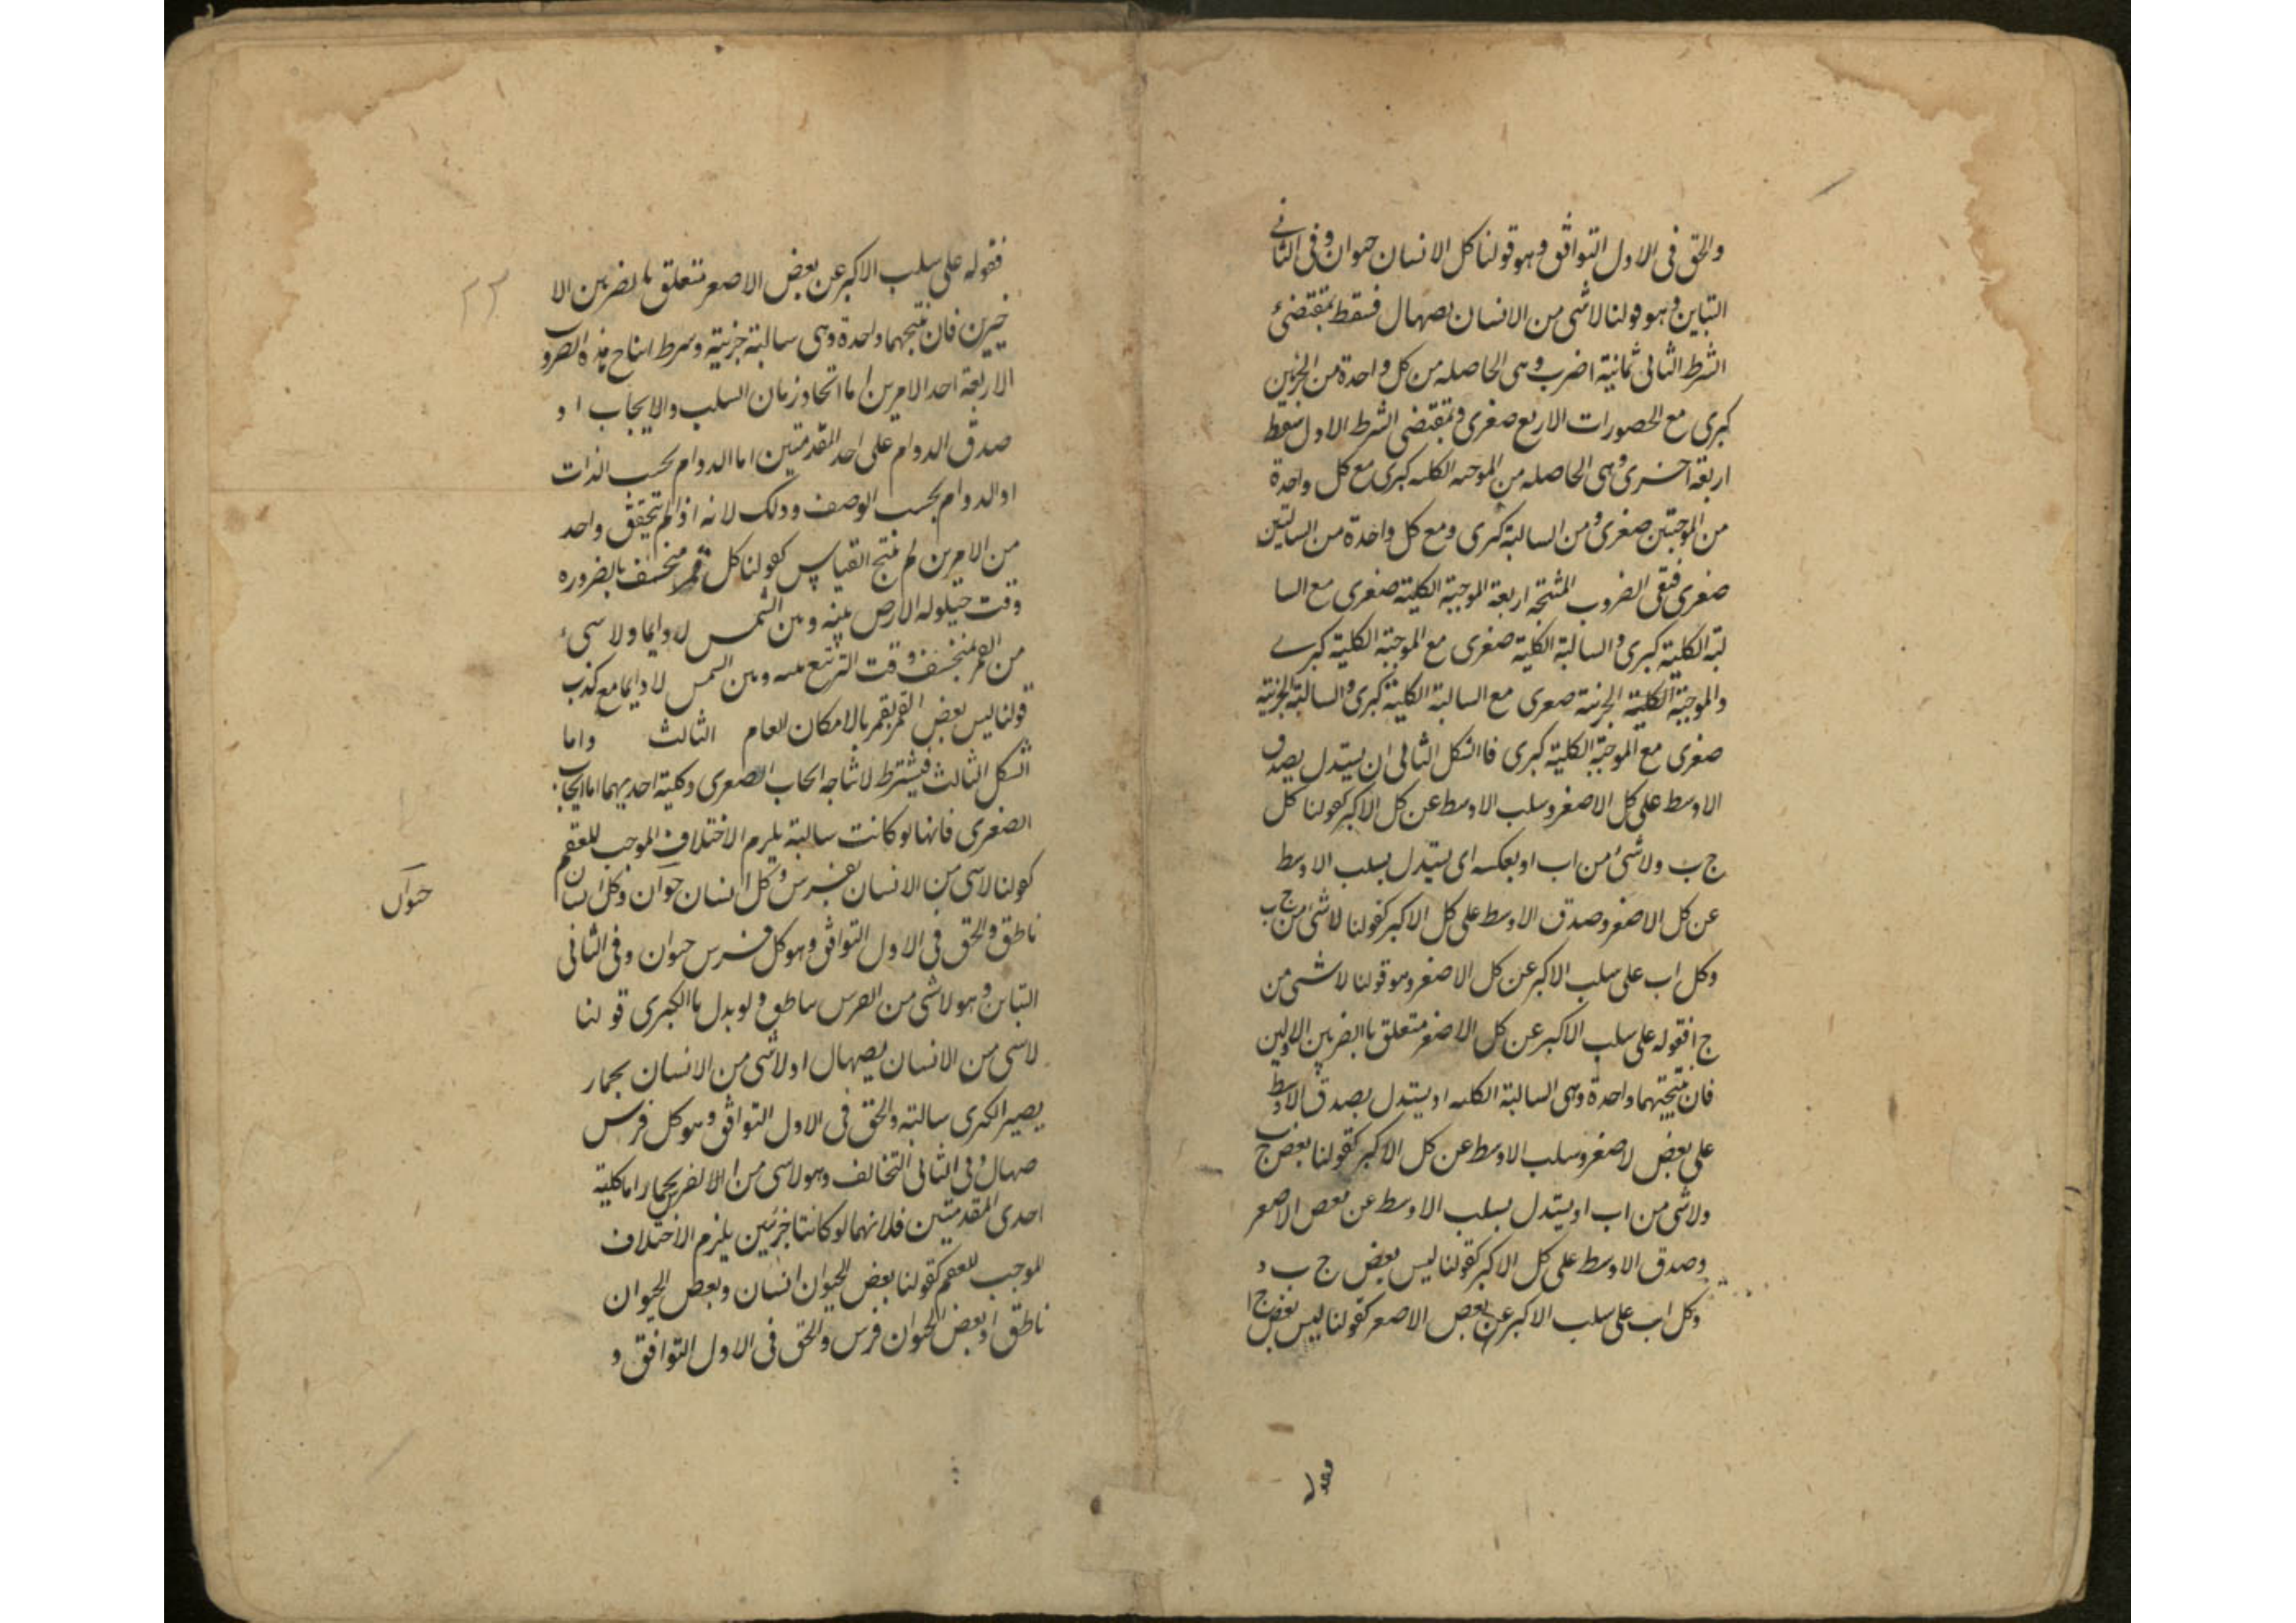 والحق فى الاول التوافق وهو قولنا كل الانسان حيوان وفى الثانے
التباين وهو قولنا لاشى من الانسان بصهال فسقط بمقتضىء
الشرط الثانى ثمانية اضرب وهى الحاصله من كل واحدة من الجزئين
كبرى مع المحصورات الاربع صغرى وبمقتضى الشرط الاول سقط
اربعة اخرى وهى الحاصله من الموجبه الكليه كبرى مع كل واحدة
من الموجبتين صغرى ومن السالبة كبرى ومع كل واحدة من السالبتين
صغرى فبقى الضروب المنتجه اربعة الموجبة الكلية صغرى مع السا
لبة الكلية كبرى والسالبة الكلية صغرى مع الموجبة الكلية كبرے
والموجبة الكلية الجزئية صغرى مع السالبة الكلية كبرى والسالبة الجزئية
صغرى مع الموجبة الكلية كبرى فاالشكل الثانى ان يستدل بصدق
الاوسط على كل الاصغر وسلب الاوسط عن كل الاكبر كقولنا كل
ج ب ولاشىء من اب او بعكسه اى يستدل بسلب الاوسط
عن كل الاصغر وصدق الاوسط على كل الاكبر كقولنا لاشىء من ج ب
وكل اب على سلب الاكبر عن كل الاصغر وهو قولنا لاشى من
ج ا فقوله على سلب الاكبر عن كل الاصغر متعلق باالضربين الاولين
فان نتيجتهما واحدة وهى السالبة الكليه او يستدل بصدق الاوسط
على بعض لاصغر وسلب الاوسط عن كل الاكبر كقولنا بعض ج ب
ولاشى من اب او يستدل بسلب الاوسط عن بعض الاصغر
وصدق الاوسط على كل الاكبر كقولنا ليس بعض ج ب و
وكل اب على سلب الاكبر عن بعض الاصغر كقولنا ليس بعض ج ا
فقوله
فقوله على سلب الاكبر عن بعض الاصغر متعلق بالضربين الا
خيرين فان نتيجتهما واحدة وهى سالبة جزئية وشرط انتاج هذه الضروب
الاربعة احد الامرين اما اتحاد زمان السلب والايجاب ا و
صدق الدوام على احد المقدمتين اما الدوام بحسب الذات
او الدوام بحسب الوصف وذلك لانه اذا لم يتحقق واحد
من الامرين لم ينتج القياس كقولنا كل قمر منخسف بالضروره
وقت حيلوله الارض بينه وبين الشمس لا دايما ولا شىء
من القمر بمنخسف وقت التربيع بينه وبين الشمس لا دايما مع كذب
قولنا ليس بعض القمر بقمر بالامكان العام الثالث واما
الشكل الثالث فيشترط لانتاجه ايجاب الصغرى وكلية احديهما اما ايجاب
الصغرى فانها لو كانت سالبة يلزم الاختلاف الموجب للعقم
كقولنا لاشى من الانسان بفرس وكل انسان حيوان وكل انسان
حيوان
ناطق والحق فى الاول التوافق وهو كل فرس حيوان وفى الثانى
التباين وهو لاشى من الفرس بناطق ولو بدل باالكبرى قولنا
لاشى من الانسان بصهال او لاشى من الانسان بحمار
يصير الكبرى سالبة والحق فى الاول التوافق وهو كل فرس
صهال وفى الثانى التخالف وهو لاشى من الالفرس بحمار اما كلية
احدى المقدمتين فلانهما لو كانتا جزئيين يلزم الاختلاف
الموجب للعقم كقولنا بعض الحيوان انسان وبعض الحيوان
ناطق او بعض الحيوان فرس والحق فى الاول التوافق و
۲۳